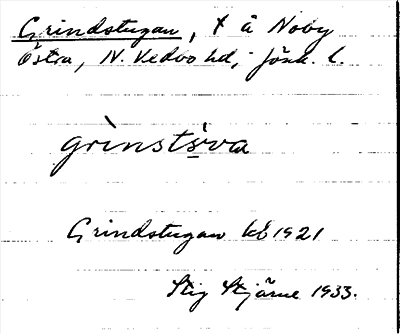 Grindstugan, † å Noby
Östra, N. Vedbo hd, Jönk. l.
grìnstùva
Grindstugan kb 1921
Stig Stjärne 1933.